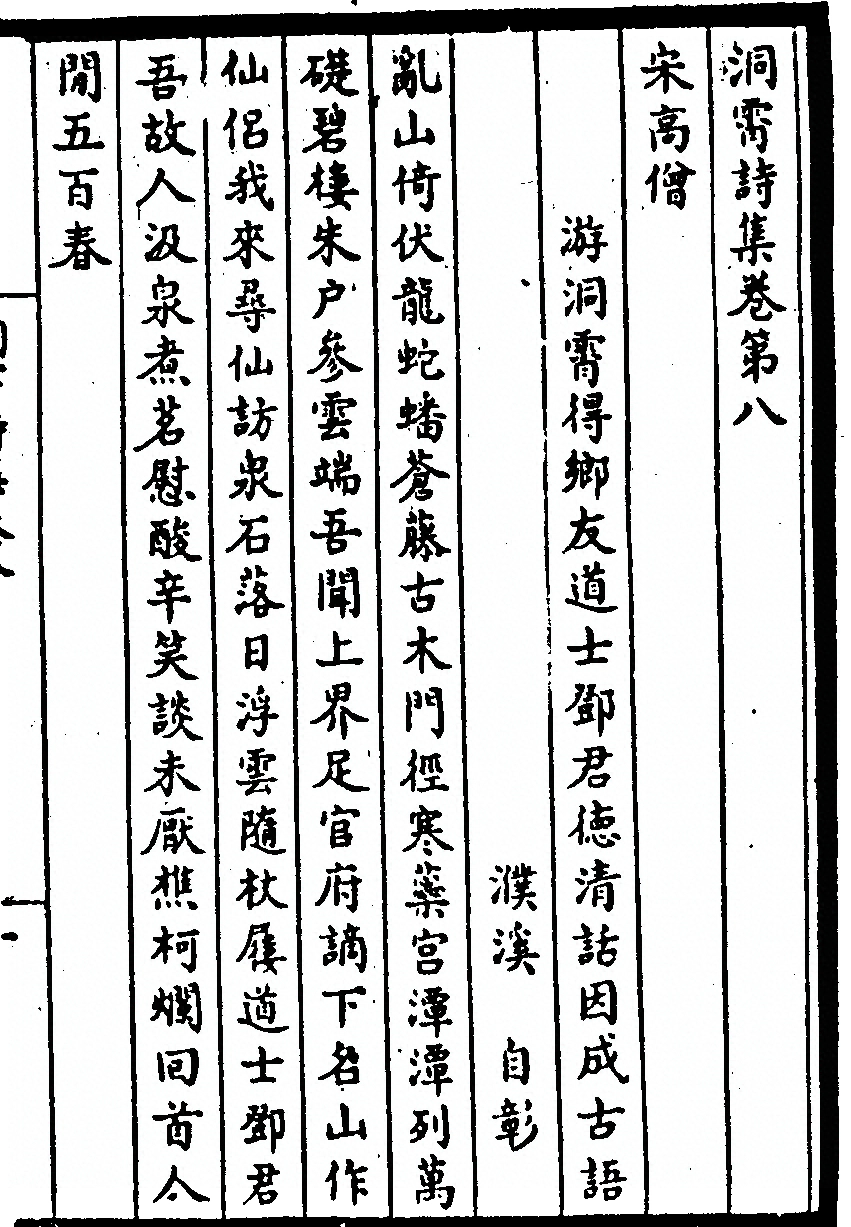 洞霄詩集卷第八
宋高僧
游洞霄得鄉友道士鄧君徳清話因成古語
濮溪　自彰
亂山倚伏龍蛇蟠蒼藤古木門徑寒蘂宫潭潭列萬
礎碧棲朱户參雲端吾聞上界足官府謫下名山作
仙侣我來尋仙訪泉石落日浮雲隨杖屨道士鄧君
吾故人汲泉煮茗慰酸辛笑談未厭樵柯爛回首人
間五百春